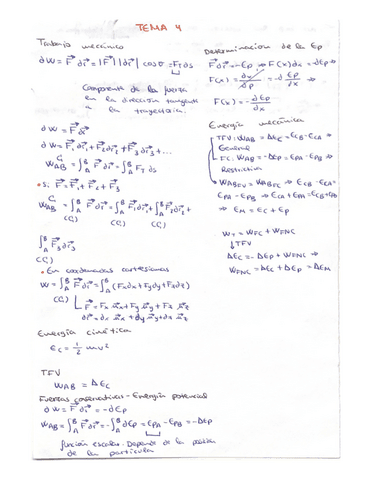 TEMA 4
Trabajo mecánico
dW = F⃗ dr⃗ = |F⃗| |dr⃗| cos θ = F_T ds
Componente de la fuerza
en la dirección tangente
a la trayectoria.
dW = F⃗ dr⃗
dW = F⃗₁ dr⃗₁ + F⃗₂ dr⃗₂ + F⃗₃ dr⃗₃ + ...
W_AB = ∫_A^B F⃗ dr⃗ = ∫_A^B F_T ds
• Si F⃗ = F⃗₁ + F⃗₂ + F⃗₃
W_AB = ∫_A^B F⃗ dr⃗ = ∫_A^B F⃗₁ dr⃗₁ + ∫_A^B F⃗₂ dr⃗₂ +
(C₁) (C₁) (C₁)
∫_A^B F⃗₃ dr⃗₃
(C₁)
• En coordenadas cartesianas
W = ∫_A^B F⃗ dr⃗ = ∫_A^B (Fx dx + Fy dy + Fz dz)
(C₁) F⃗ = Fx u⃗x + Fy u⃗y + Fz u⃗z
dr⃗ = dx u⃗x + dy u⃗y + dz u⃗z
Energía cinética
Ec = 1/2 mv²
TFV
W_AB = ΔEc
Fuerzas conservativas - Energía potencial
dW = F⃗ dr⃗ = -dEp
W_AB = ∫_A^B F⃗ dr⃗ = -∫_A^B dEp = E_PA - E_PB = -ΔEp
función escalar. Depende de la posición
de la partícula
Determinacion de la Ep
F⃗ dr⃗ = -Ep ⇒ F(x) dx = -dEp ⇒
F(x) = - dEp/dx ⇒
F(x) = - dEp/dx
Energía mecánica
TFV: W_AB = ΔEc = E_CB - E_CA ⇒
General
FC: W_AB = -ΔEp = E_PA - E_PB ⇒
Restrictiva
E_CB - E_CA =
E_PA - E_PB ⇒ E_CA + E_PA = E_CB + E_PB
⇒ E_M = Ec + Ep
W_T = W_FC + W_FNC
↓TFV
ΔEc = -ΔEp + W_FNC ⇒
W_FNC = ΔEc + ΔEp = ΔE_M